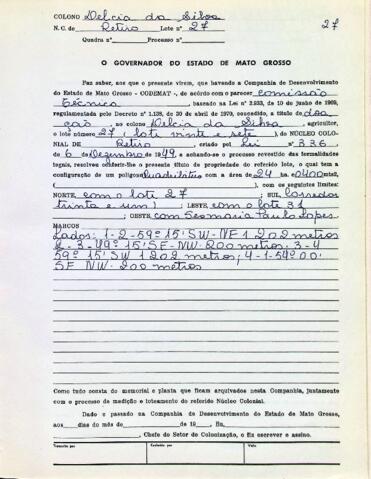 COLONO Delcia da Silva
N.C. de Retiro Lote nº 27
27
Quadra nº Processo nº
O GOVERNADOR DO ESTADO DE MATO GROSSO
Faz saber, aos que o presente virem, que havendo a Companhia de Desenvolvimento
do Estado de Mato Grosso - CODEMAT-, de acordo com o parecer comissão
técnica, baseado na Lei nº 2.933, de 10 de junho de 1969,
regulamentada pelo Decreto nº 1.138, de 30 de abril de 1970, concedido, a título de doa
ção, ao colono Delcia da Silva, agricultor,
o lote número 27 (lote vinte e sete), do NÚCLEO COLO-
NIAL DE Retiro, criado por Lei nº 336,
de 6 de Dezembro de 1949, e achando-se o processo revestido das formalidades
legais, resolveu conferir-lhe o presente título de propriedade do referido lote, o qual tem a
configuração de um polígono Quadrilátero com a área de 24 ha. 0400 mts2,
( ), com os seguintes limites:
NORTE, com o lote 27; SUL, Corredor
trinta e um; LESTE, com o lote 31
; OESTE, com Sesmaria Paulo Lopes.
MARCOS
Lados: 1-2-59º 15' SW-NE 1 202 metros
2-3-49º 15' SE-NW-200 metros; 3-4
59º 15' SW 1 202 metros; 4-1-54º 00'
SE NW-200 metros
Como tudo consta do memorial e planta que ficam arquivados nesta Companhia, juntamente
com o processo de medição e loteamento do referido Núcleo Colonial.
Dado e passado na Companhia de Desenvolvimento do Estado de Mato Grosso,
aos dias do mês de de 19 , Eu,
, Chefe do Setor de Colonização, o fiz escrever e assino.
Transcrito por
Conferido por
Visto